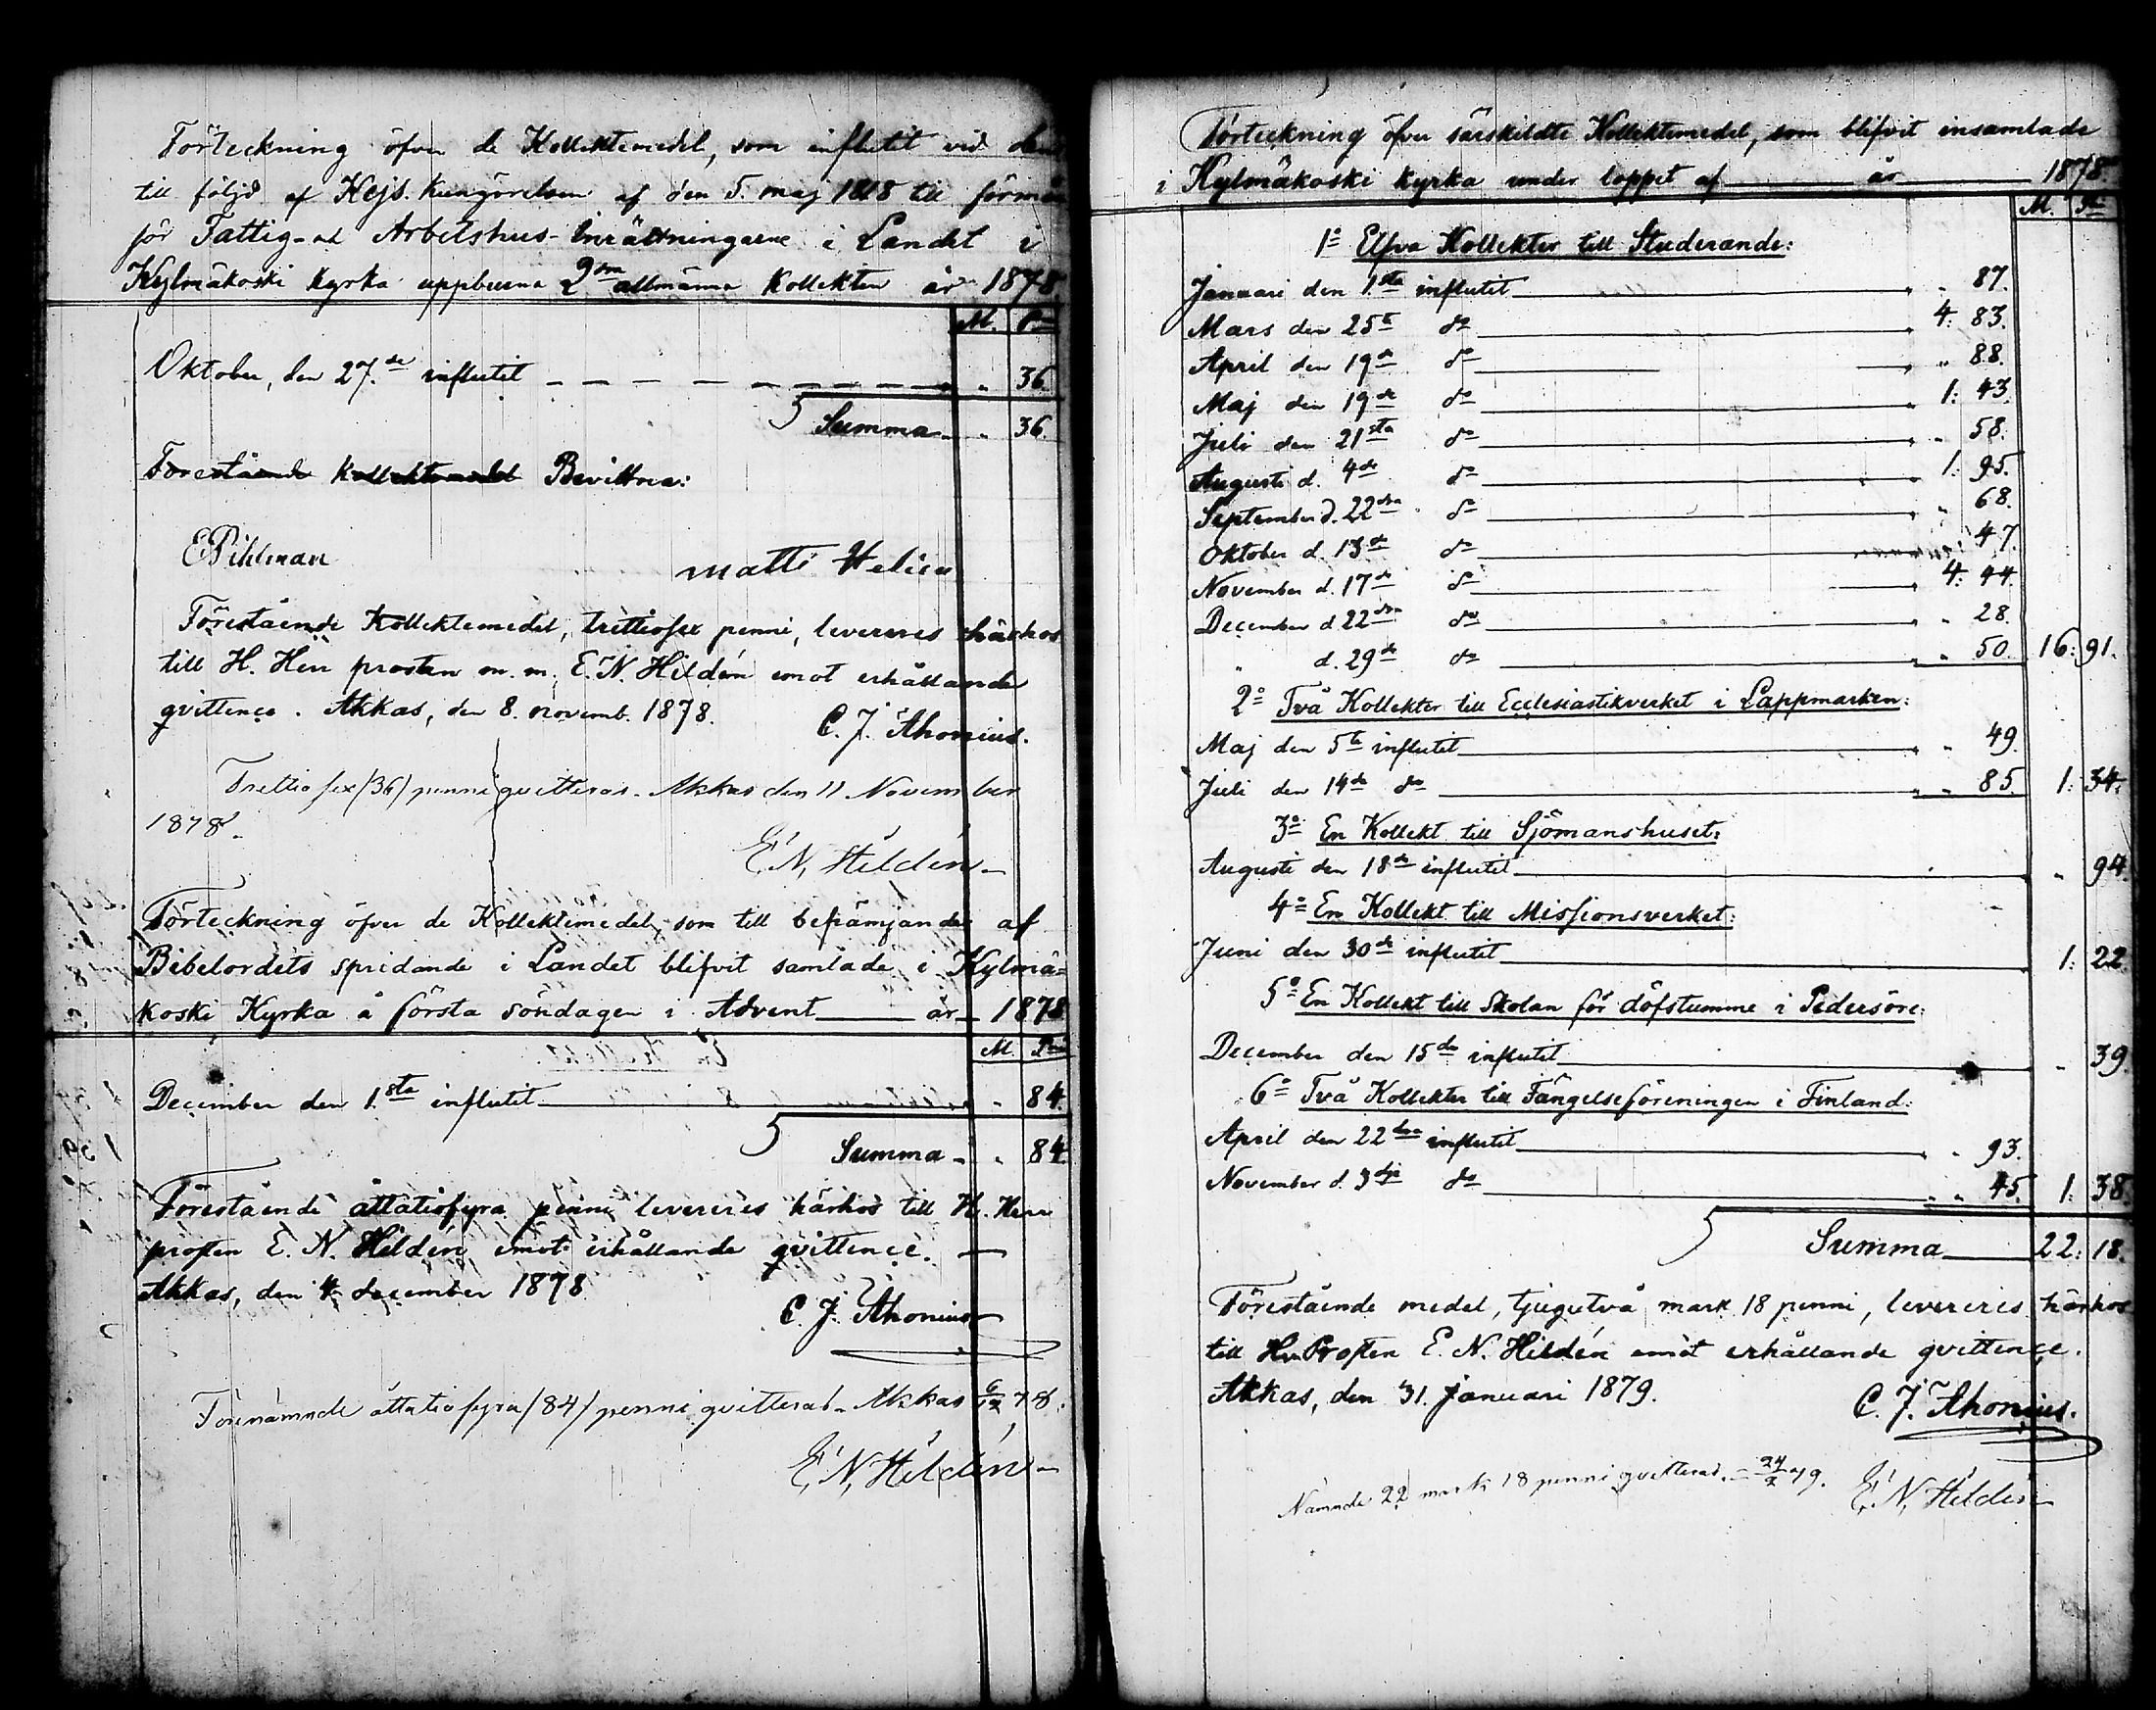 Förteckning öfver de Kollektemedel, som influtit vid den
till följd af Kejs. Kungörelsen af den 5. maj 1818 till förmån
för Fattig- och Arbetshus-Inrättningarne i Landet i
Kylmäkoski kyrka uppburna 2dra allmänna Kollekten år 1878
M. Pni
Oktober, den 27.de influtit " 36.
Summa " 36.
Förestående Kollektemedel Bevittna:
E Pihlman
matti Helin
Förestående Kollektemedel, trettiosex penni, levereres härhos
till H. Herr prosten m. m. E. N. Hildén emot erhållande
qvittence. Akkas, den 8. novemb. 1878.
C. J. Ahonius.
Trettiosex (36) penni qvitteras. Akkas den 11 November
1878.
E. N. Hildén
Förteckning öfver de Kollektemedel, som till befrämjande af
Bibelordets spridande i Landet blifvit samlade i Kylmä=
koski Kyrka å första söndagen i Advent år 1878
M. Pni
December den 1.sta influtit " 84.
Summa " 84.
Förestående åttatiofyra penni levereres härhos till H. Herr
prosten E. N. Hildén emot erhållande qvittence.
Akkas, den 4 december 1878
C. J. Ahonius
Förenämnde åttatiofyra (84) penni qvitteras. Akkas 6/12 78.
E. N. Hildén
Förteckning öfver särskildte Kollektemedel, som blifvit insamlade
i Kylmäkoski kyrka under loppet af år 1878.
M. Pni
1o Elfva Kollekter till Studerande:
Januari den 1.sta influtit " 87.
Mars den 25te do 4: 83.
April den 19de do " 88.
Maj den 19de do 1: 43.
Juli den 21sta do " 58.
Augusti d. 4de do 1: 95.
September d. 22dra do " 68.
Oktober d. 13de do 47.
November d. 17de do 4: 44.
December d. 22dra do " 28.
" d. 29de do " 50. 16: 91.
2o Två Kollekter till Ecclesiastikverket i Lappmarken:
Maj den 5te influtit " 49.
Juli den 14de do " 85. 1: 34.
3o En Kollekt till Sjömanshuset:
Augusti den 18de influtit " 94.
4o En Kollekt till Missionsverket:
Juni den 30de influtit 1: 22.
5o En Kollekt till Skolan för döfstumme i Pedersöre:
December den 15de influtit " 39.
6o Två Kollekter till Fängelseföreningen i Finland:
April den 22dra influtit " 93.
November d. 3dje do " 45. 1: 38.
Summa 22: 18.
Förestående medel, tjugutvå mark 18 penni, levereres härhos
till H. Prosten E. N. Hildén emot erhållande qvittence.
Akkas, den 31. Januari 1879.
C. J. Ahonius.
Nämnde 22 mark 18 penni qvitteras. 24/2 79.
E. N. Hildén